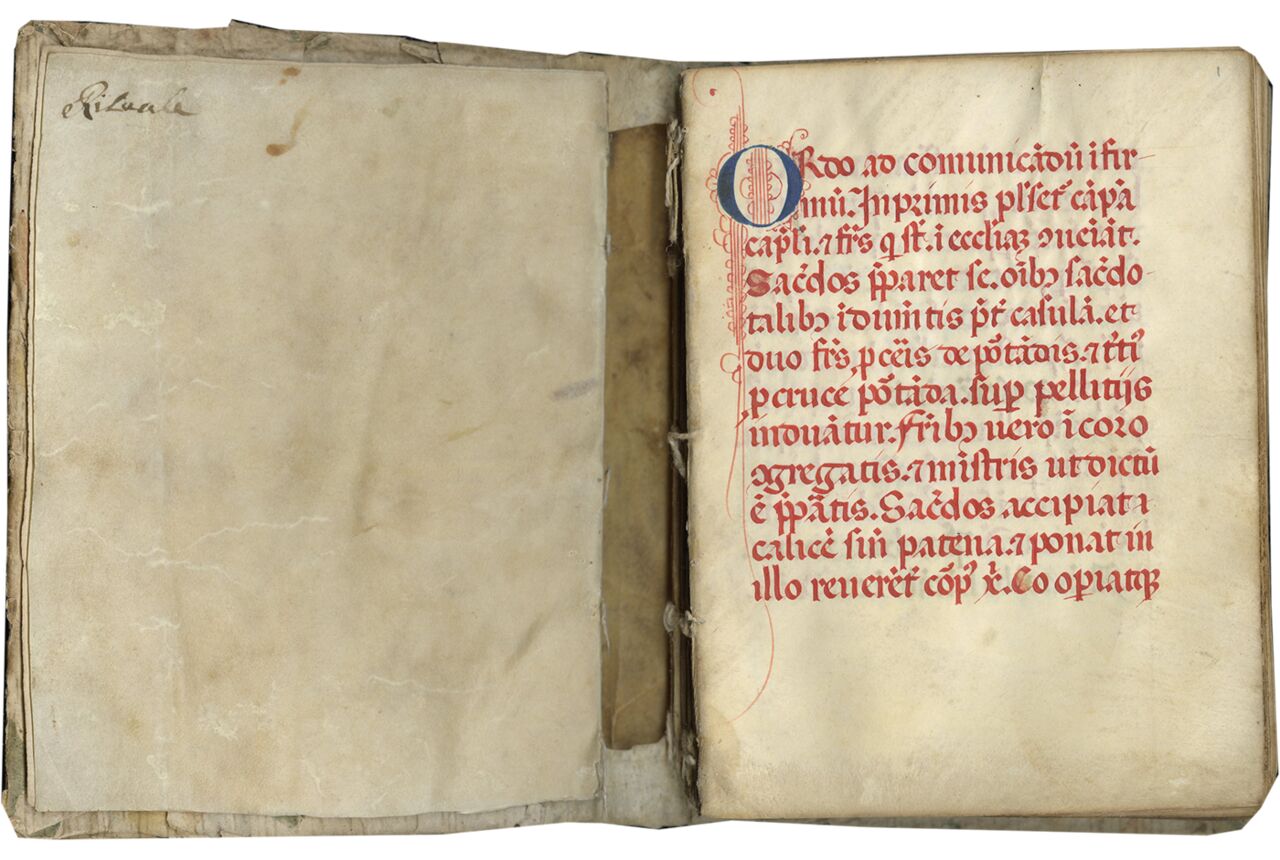 Rituale
1
ORdo ad comunicādū ifir
mū. In primis pulset cāpa
cap̄li. ⁊ fr̄s q̄ st̄. ī
Sac̄dos p̄paret se. oib; sac̄do
talib; īduim̄tis p̄t casulā. et
duo fr̄s, p ceis de pōtādis. ⁊ t̄ti⁹
p cruce pōtāda. sup pelliciis
induātur. Frib; uero ī coro
ꝯgregatis. ⁊ ministris ut dictū
ē p̄patis. Sac̄dos accipiat
calicē sin̄ patena. ⁊ ponat in
illo reuerēt̄ cōp⁹ x̄. Co opiatq;